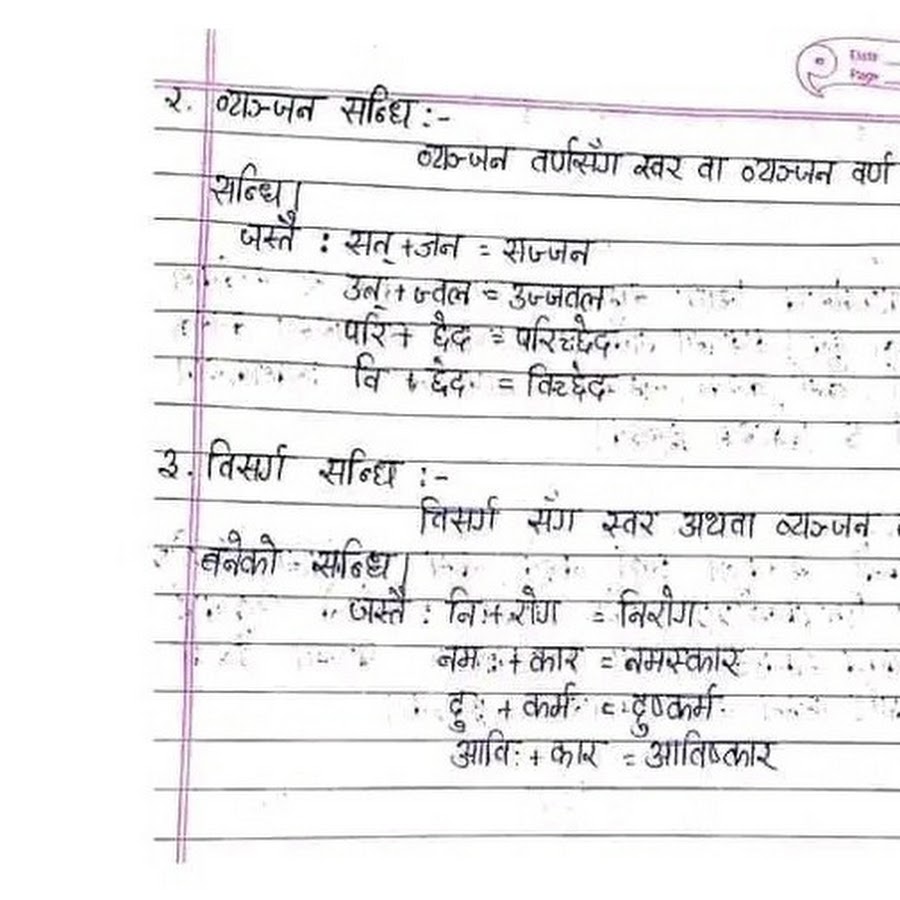 Date
Page
२. व्यञ्जन सन्धि :-
व्यञ्जन वर्णसँग स्वर वा व्यञ्जन वर्ण
सन्धि।
जस्तै : सत् + जन = सज्जन
उत् + ज्वल = उज्जवल
परि + छेद = परिच्छेद
वि + छेद = विच्छेद
३. विसर्ग सन्धि :-
विसर्ग सँग स्वर अथवा व्यञ्जन
बनेको सन्धि।
जस्तै : नि: + रोग = निरोग
नम: + कार = नमस्कार
दु: + कर्म = दुष्कर्म
आवि: + कार = आविष्कार